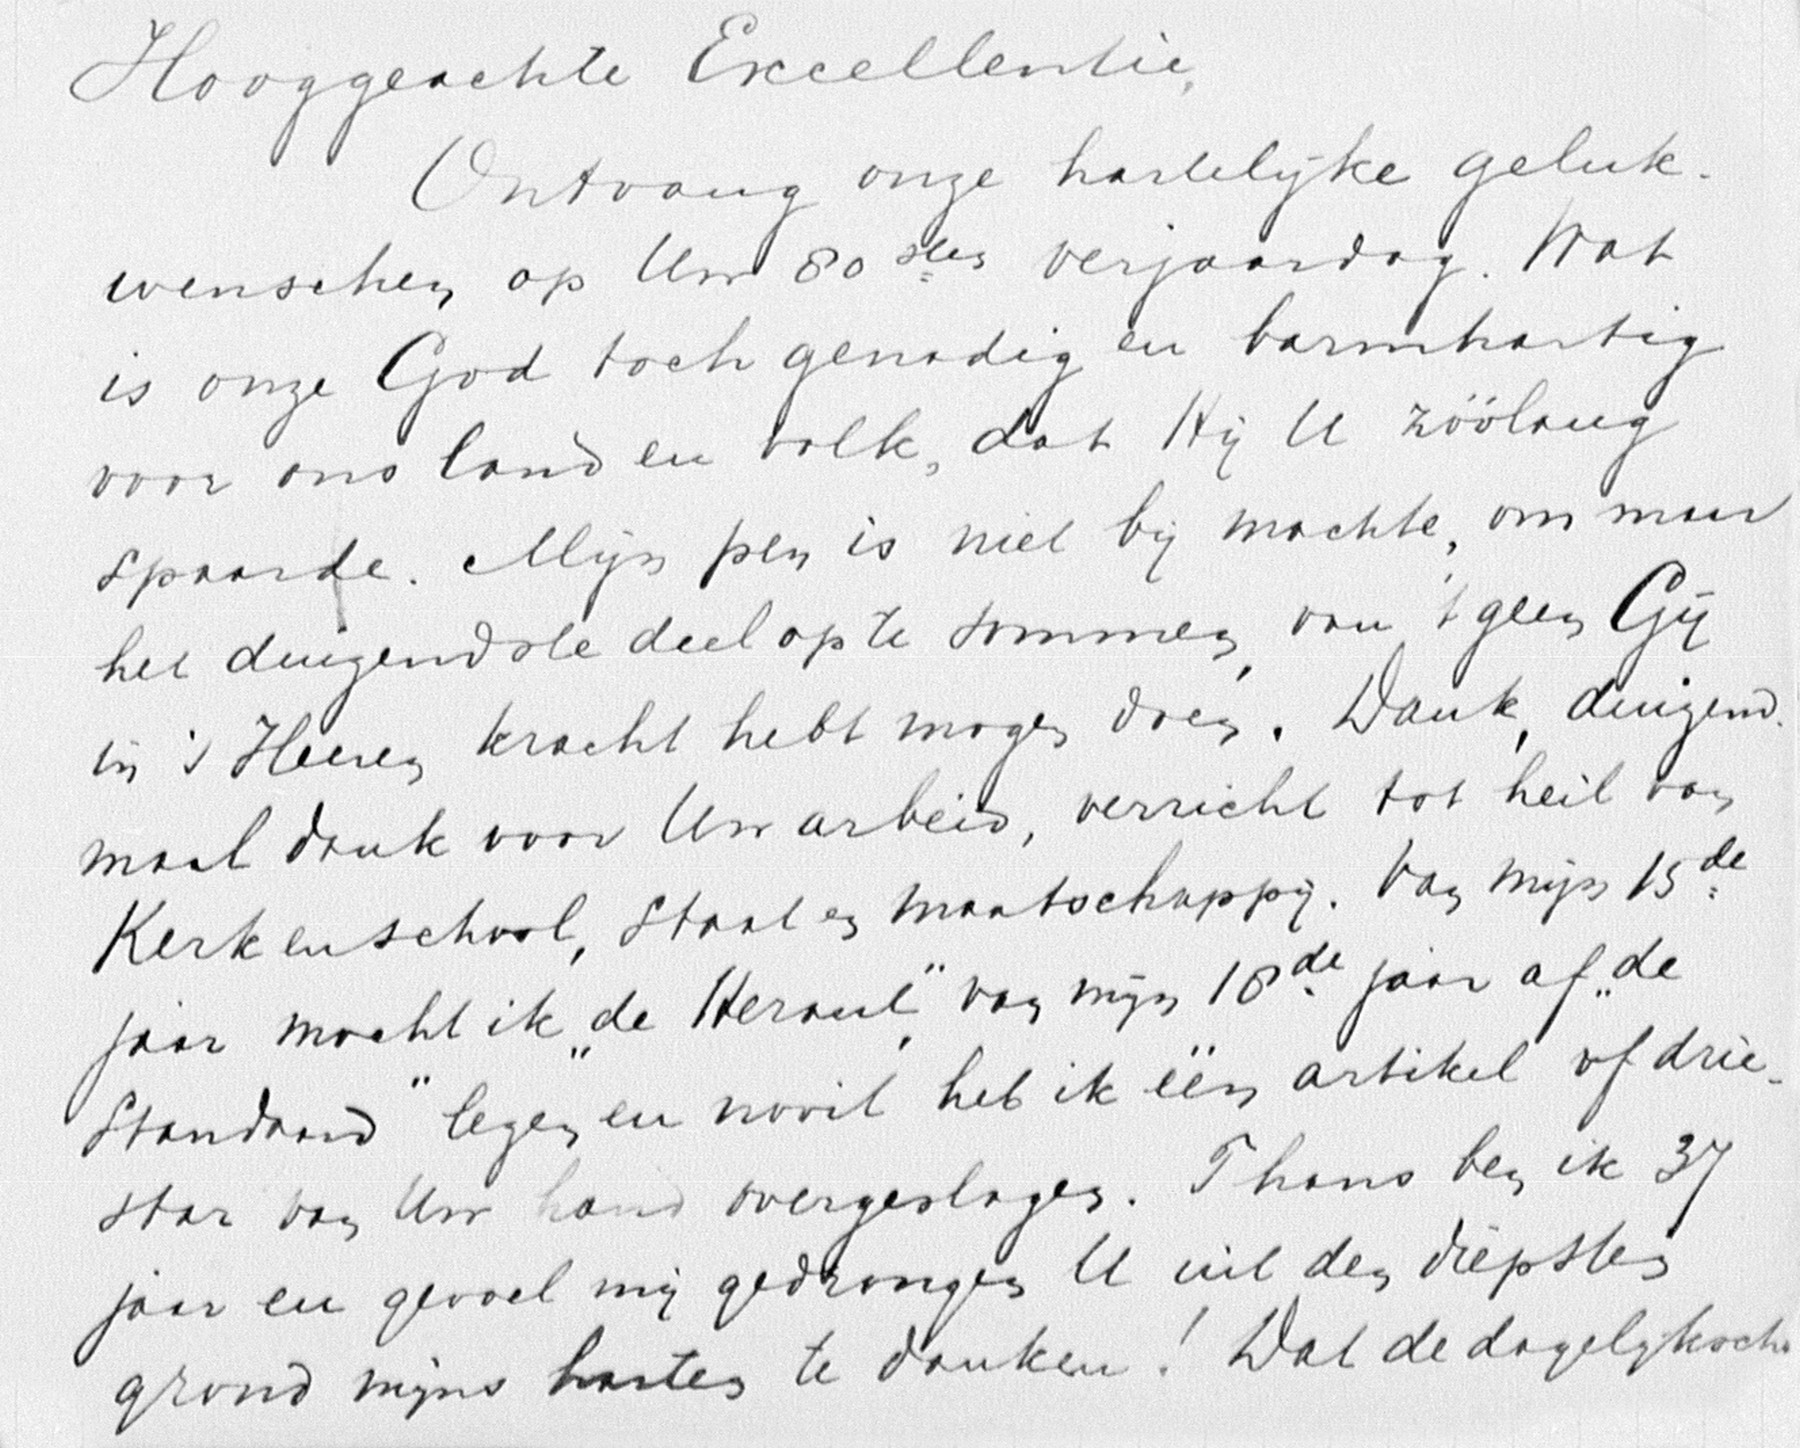 Hooggeachte Excellentie,
Ontvang onze hartelijke geluk-
wenschen op Uw 80sten verjaardag. Wat
is onze God toch genadig en barmhartig
voor ons land en volk, dat Hij U zóólang
spaarde. Mijn pen is niet bij machte, om maar
het duizendste deel op te sommen, van 't geen Gij
in 's Heeren kracht hebt mogen doen. Dank, duizend-
maal dank voor Uw arbeid, verricht tot heil van
Kerk en school, Staat en maatschappij. Van mijn 15de
jaar mocht ik „de Heraut", van mijn 18de jaar af „de
Standaard" lezen en nooit heb ik één artikel of drie-
star van Uw hand overgeslagen. Thans ben ik 37
jaar en gevoel mij gedrongen U uit den diepsten
grond mijns harten te danken! Dat de dagelijksche